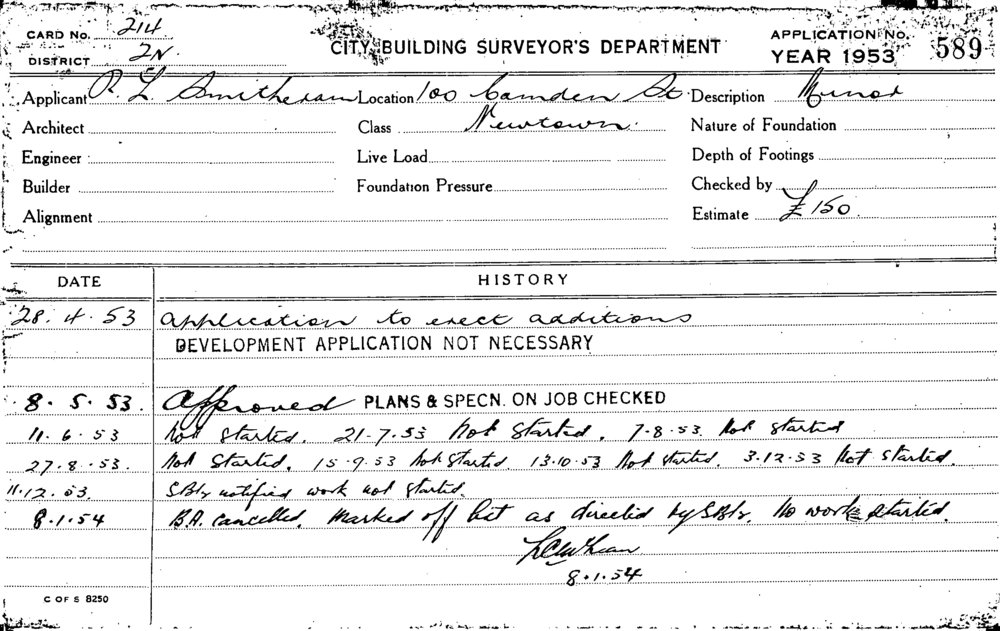 CARD No. 214
CITY BUILDING SURVEYOR'S DEPARTMENT
APPLICATION No. 589
DISTRICT 2N
YEAR 1953
Applicant R. L Smitheram Location 100 Camden St. Description Minor
Architect Class Newtown. Nature of Foundation
Engineer Live Load Depth of Footings
Builder Foundation Pressure Checked by
Alignment Estimate £150
DATE HISTORY
28.4.53 Application to erect additions
DEVELOPMENT APPLICATION NOT NECESSARY
8.5.53. Approved PLANS & SPECN. ON JOB CHECKED
11.6.53 Not Started. 21-7.53 Not Started. 7-8.53. Not Started
27.8.53. Not Started. 15-9.53 Not Started. 13.10.53 Not Started. 3.12.53 Not Started.
11.12.53. notified work not started.
8.1.54 B.A. cancelled. Marked off list as directed by No work started.
8.1.54
C OF S 8250